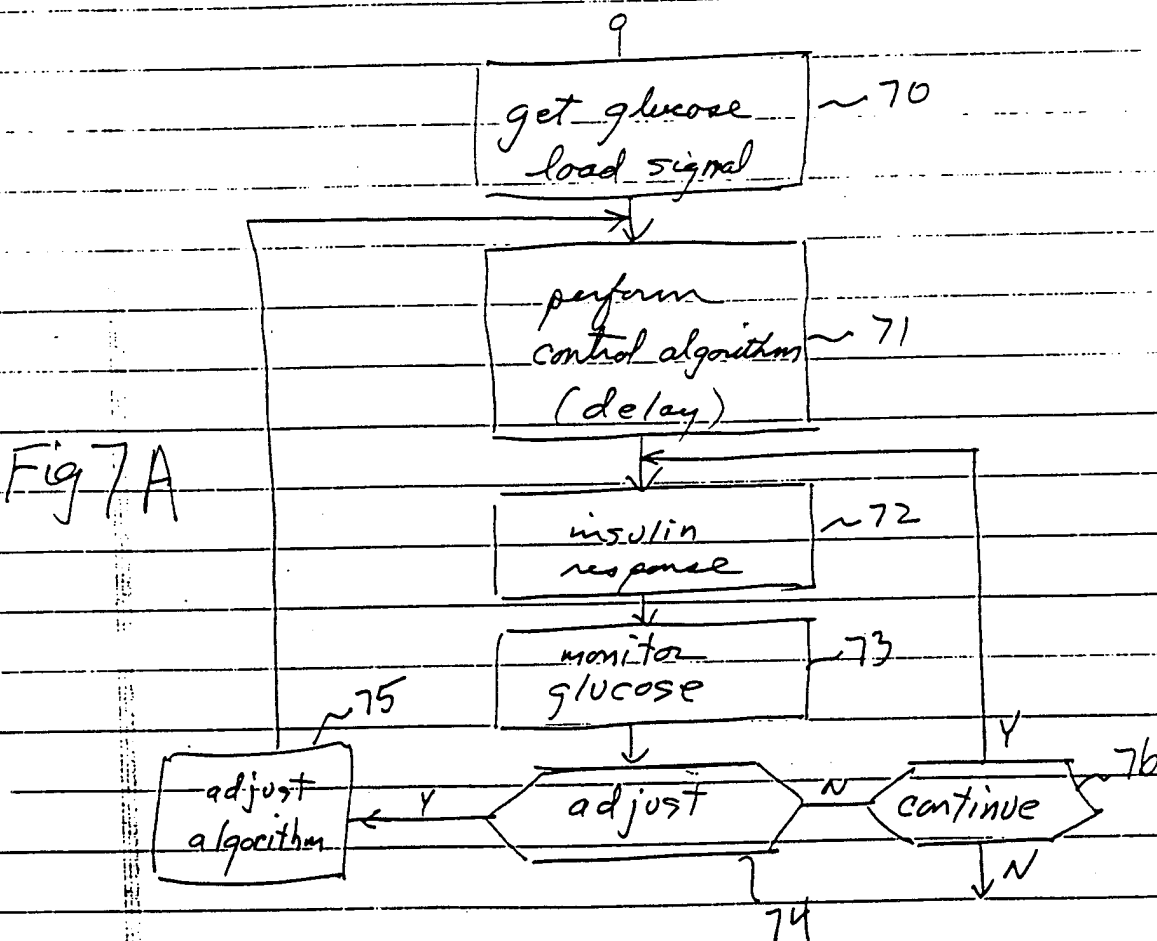 get glucose
load signal
70
perform
control algorithm
(delay)
71
Fig 7A
insulin
response
72
monitor
glucose
73
75
adjust
algorithm
Y
adjust
N
continue
Y
76
N
74